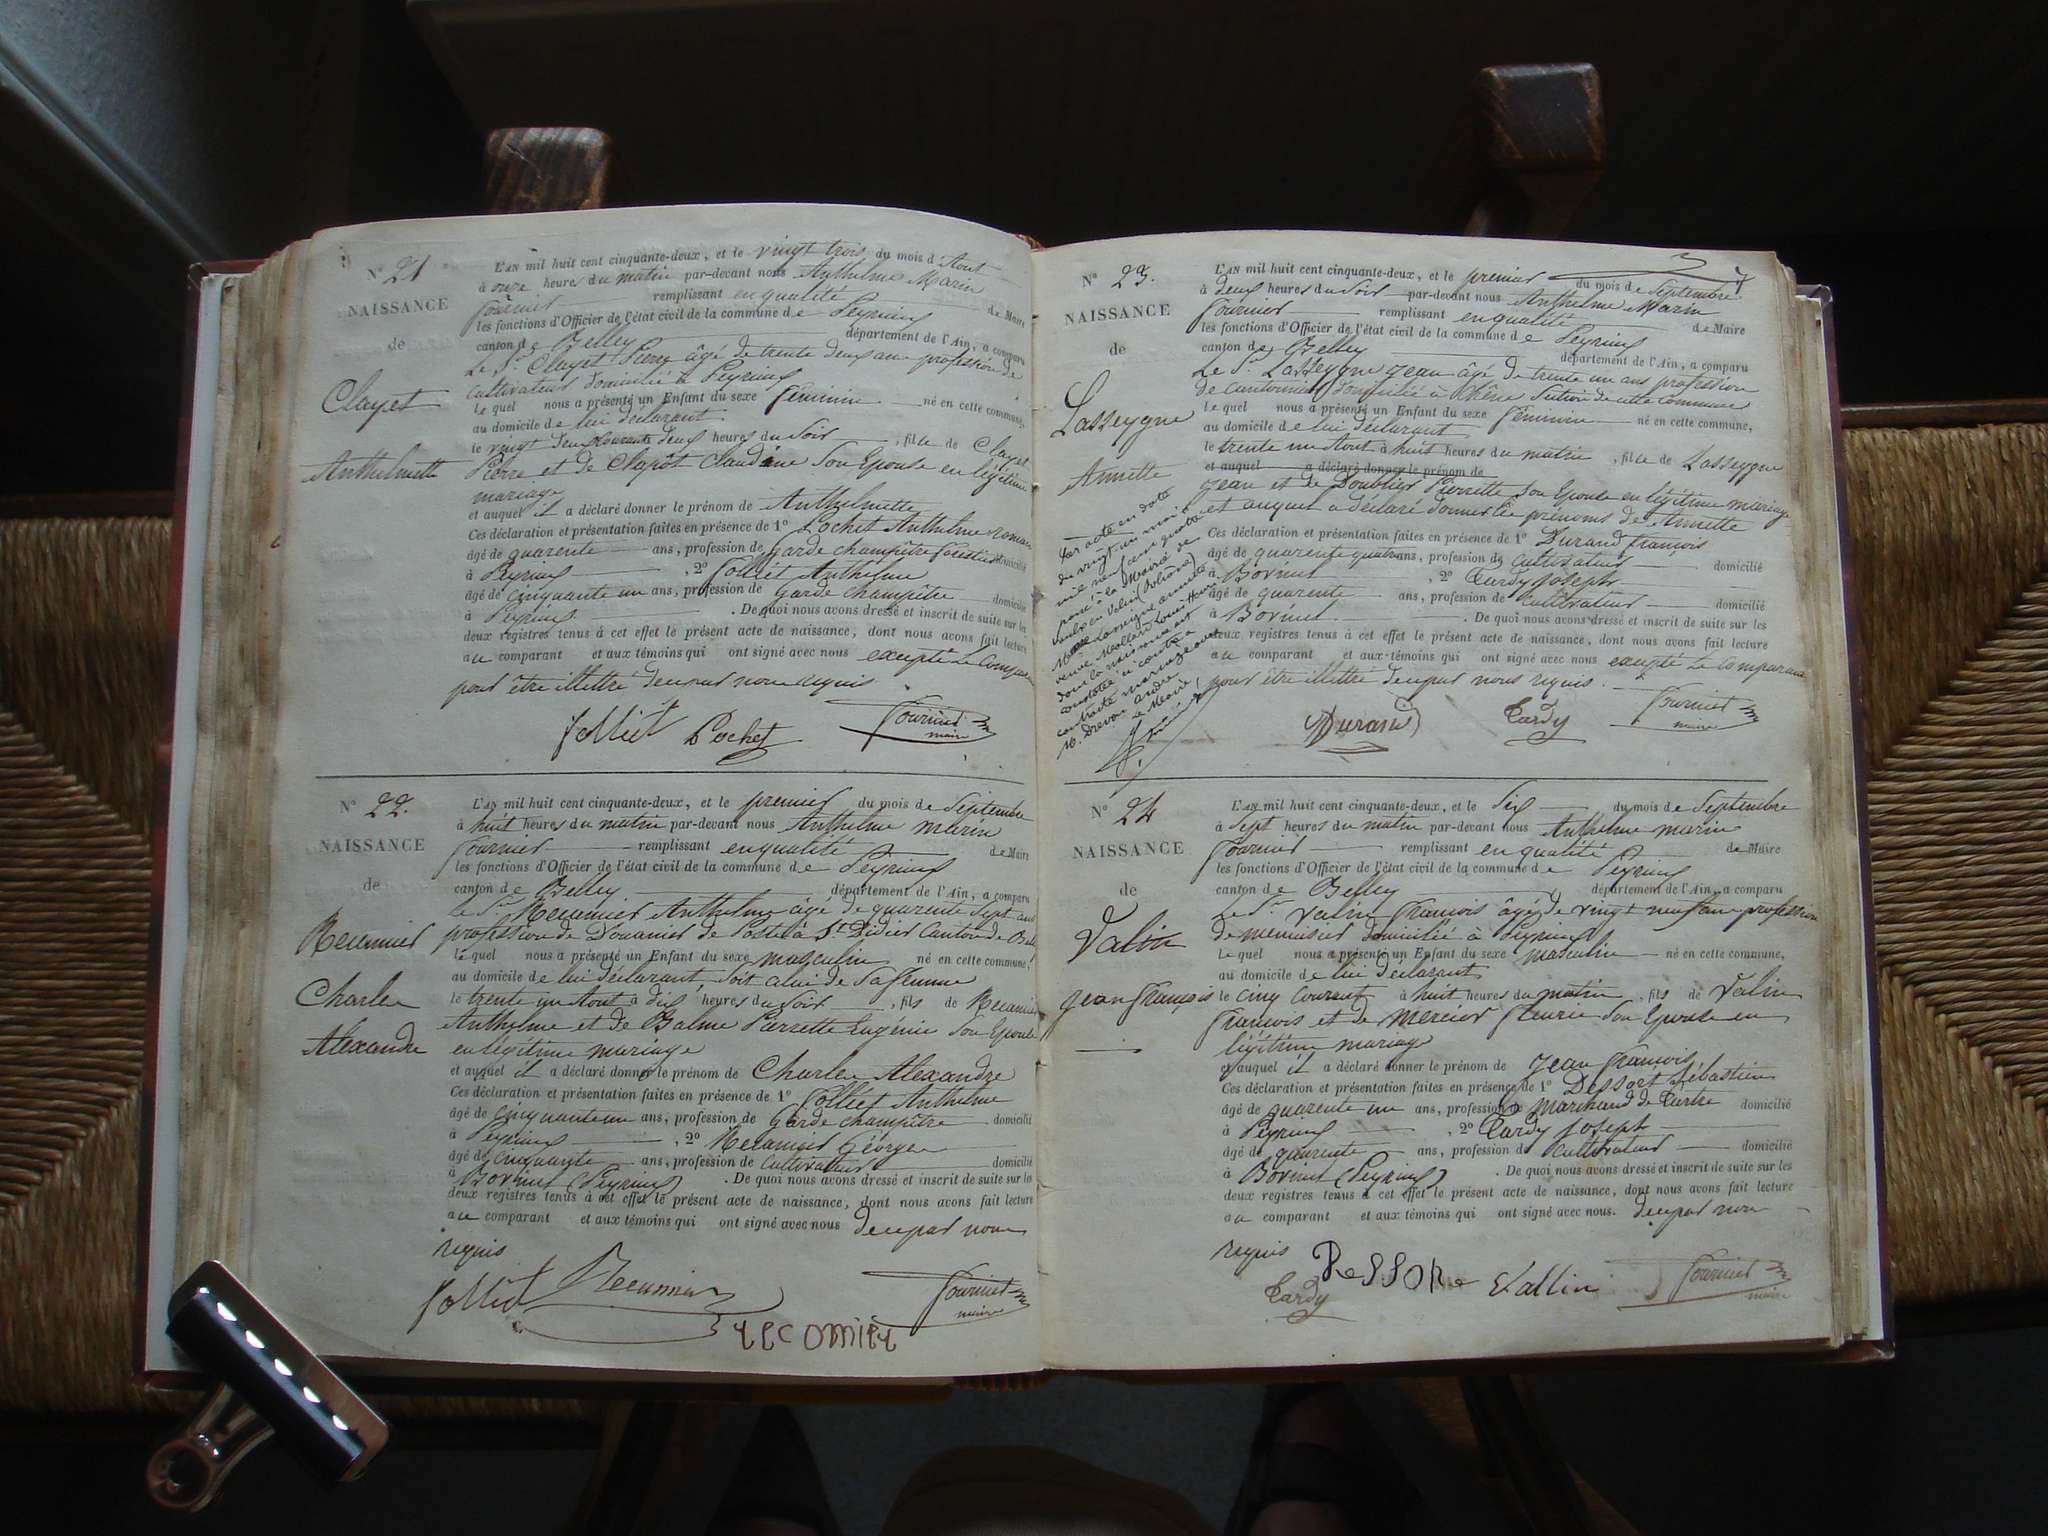 N° 21
NAISSANCE
de
Clayet
Anthelmette
L'AN mil huit cent cinquante-deux, et le vingt trois du mois d'Aout
à onze heures du matin par-devant nous Anthelme Marin
Fournier remplissant en qualité de Maire
les fonctions d'Officier de l'état civil de la commune de Peyrieu
canton de Belley département de l'Ain, a comparu
Le Sr. Clayet Pierre âgé de trente deux ans profession de
cultivateur domicilié à Peyrieu
Lequel nous a présenté un Enfant du sexe féminin né en cette commune,
au domicile de lui déclarant
le vingt deux courant deux heures du soir, fille de Clayet
Pierre et de Clapot Claudine son Epouse en légitime
mariage
et auquel il a déclaré donner le prénom de Anthelmette
Ces déclaration et présentation faites en présence de 1° Pochet Anthelme
âgé de quarente ans, profession de Garde champêtre forestier domicilié
à Peyrieu, 2° Folliet Anthelme
âgé de cinquante un ans, profession de Garde champêtre domicilié
à Peyrieu. De quoi nous avons dressé et inscrit de suite sur les
deux registres tenus à cet effet le présent acte de naissance, dont nous avons fait lecture
au comparant et aux témoins qui ont signé avec nous excepté le Comparant
pour être illettré de ce par nous requis
folliet Pochet Fournier
maire
N° 22.
NAISSANCE
de
Recamier
Charles
Alexandre
L'AN mil huit cent cinquante-deux, et le premier du mois de Septembre
à huit heures du matin par-devant nous Anthelme marin
Fournier remplissant en qualité de Maire
les fonctions d'Officier de l'état civil de la commune de Peyrieu
canton de Belley département de l'Ain, a comparu
Le Sr. Recamier Anthelme âgé de quarente sept ans
profession de Douanier de Poste à St. Didier Canton de
Lequel nous a présenté un Enfant du sexe masculin né en cette commune,
au domicile de lui déclarant soit celui de sa femme
le trente un Aout à dix heures du soir, fils de Recamier
Anthelme et de Balme Pierrette Eugénie son Epouse
en légitime mariage
et auquel il a déclaré donner le prénom de Charles Alexandre
Ces déclaration et présentation faites en présence de 1° Folliet Anthelme
âgé de cinquante un ans, profession de Garde champêtre domicilié
à Peyrieu, 2° Recamier George
âgé de cinquante ans, profession de cultivateur domicilié
à Bovinet (Peyrieu). De quoi nous avons dressé et inscrit de suite sur les
deux registres tenus à cet effet le présent acte de naissance, dont nous avons fait lecture
au comparant et aux témoins qui ont signé avec nous de ce par nous
requis
folliet Recamier Fournier
maire
recomier
N° 23.
NAISSANCE
de
Lasseygne
Annette
Par acte en date
du vingt un mars
mil neuf cent quatre
passé à la Mairie de
Vaulx en Velin (Rhône)
Lasseigne annette
veuve Mollard Louis Henri
dont la naissance est
constatée ci-contre a
contracté mariage avec
M. Drevon André
Le Maire,
L'AN mil huit cent cinquante-deux, et le premier du mois de Septembre
à deux heures du soir par-devant nous Anthelme Marin
Fournier remplissant en qualité de Maire
les fonctions d'Officier de l'état civil de la commune de Peyrieu
canton de Belley département de l'Ain, a comparu
Le Sr. Lasseygne Jean âgé de trente un ans profession
de cantonnier domicilié à Chêne section de cette Commune
Lequel nous a présenté un Enfant du sexe féminin né en cette commune,
au domicile de lui déclarant
le trente un Aout à huit heures du matin, fille de Lasseygne
et auquel a déclaré donner le prénom de
Jean et de Doublier Pierrette son Epouse en légitime mariage
et auquel a déclaré donner les prénoms de Annette
Ces déclaration et présentation faites en présence de 1° Durand François
âgé de quarente quatre ans, profession de cultivateur domicilié
à Bovinet, 2° Tardy Joseph
âgé de quarente ans, profession de cultivateur domicilié
à Bovinet. De quoi nous avons dressé et inscrit de suite sur les
deux registres tenus à cet effet le présent acte de naissance, dont nous avons fait lecture
au comparant et aux témoins qui ont signé avec nous excepté le comparant
pour être illettré de ce par nous requis.
Durand Tardy Fournier
maire
N° 24
NAISSANCE
de
Valin
Jean François
L'AN mil huit cent cinquante-deux, et le six du mois de Septembre
à sept heures du matin par-devant nous Anthelme marin
Fournier remplissant en qualité de Maire
les fonctions d'Officier de l'état civil de la commune de Peyrieu
canton de Belley département de l'Ain, a comparu
Le Sr. Valin François âgé de vingt neuf ans profession
de menuisier domicilié à Peyrieu
Lequel nous a présenté un Enfant du sexe masculin né en cette commune,
au domicile de lui déclarant
le cinq courant à huit heures du matin, fils de Valin
François et de Mercier fleurie son Epouse en
légitime mariage
et auquel il a déclaré donner le prénom de Jean François
Ces déclaration et présentation faites en présence de 1° Dessort Sébastien
âgé de quarente un ans, profession de marchand de domicilié
à Peyrieu, 2° Tardy Joseph
âgé de quarente ans, profession de cultivateur domicilié
à Bovinet (Peyrieu). De quoi nous avons dressé et inscrit de suite sur les
deux registres tenus à cet effet le présent acte de naissance, dont nous avons fait lecture
au comparant et aux témoins qui ont signé avec nous. de ce par nous
requis
Tardy Vallin Fournier
maire